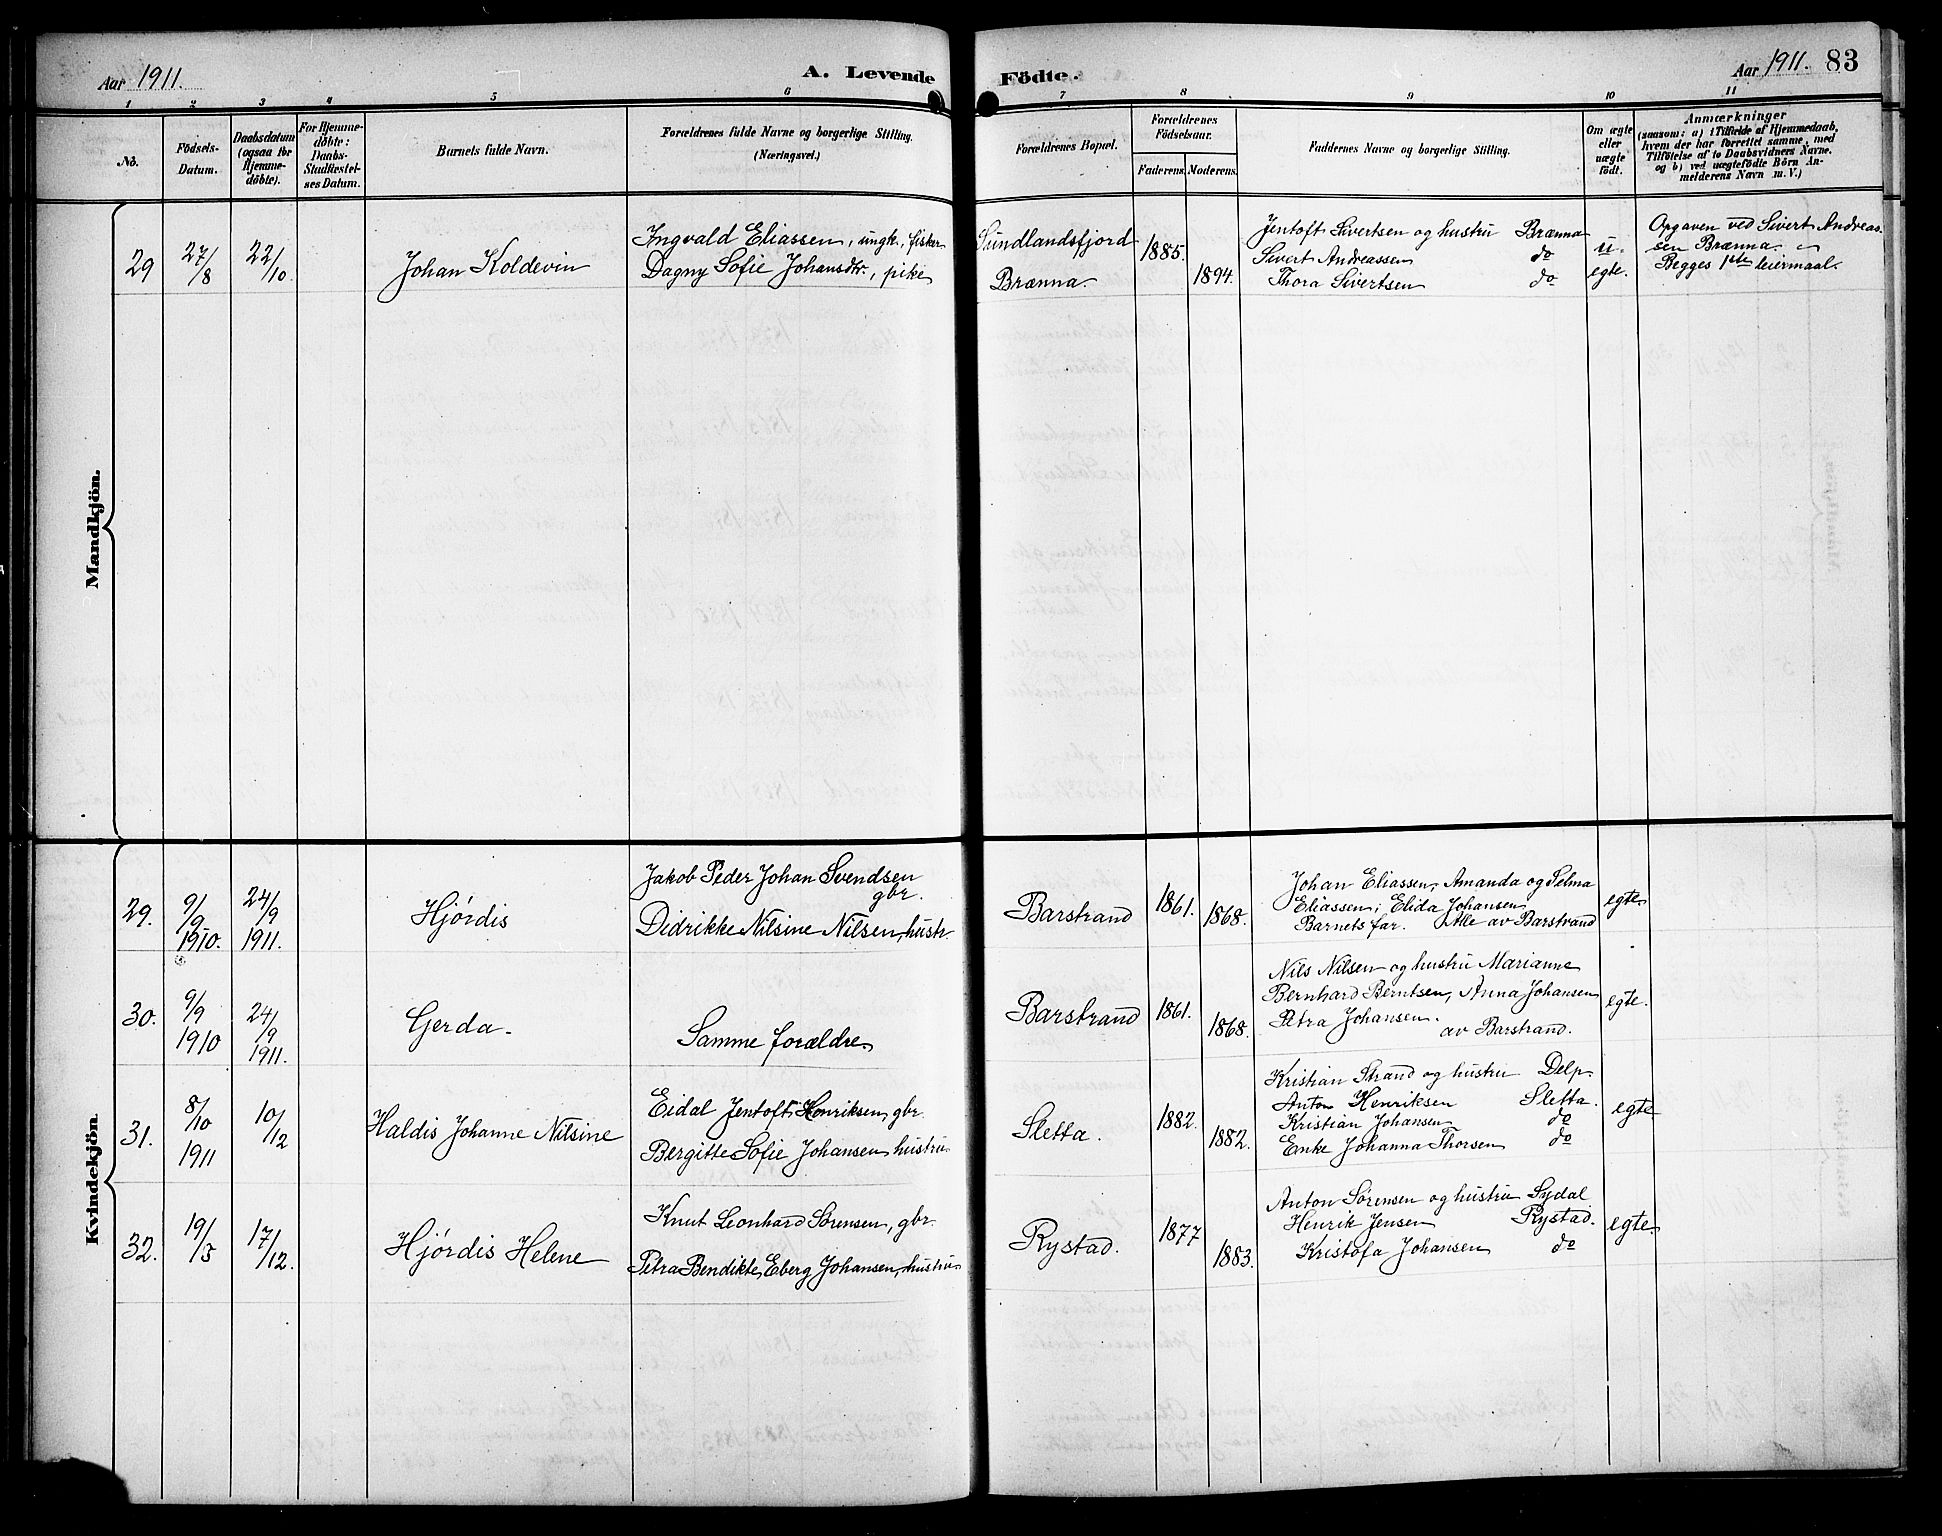 Aar 1911.
A. Levende Födte.
Aar 1911. 83
1 2 3 4 5 6 7 8 9 10 11
No.
Födsels-
Datum.
Daabsdatum
(ogsaa for
Hjemme-
döbte).
For Hjemme-
döbte:
Daabs-
Stadfæstel-
ses Datum.
Barnets fulde Navn.
Forældrenes fulde Navne og borgerlige Stilling.
(Næringsvei.)
Forældrenes Bopæl.
Forældrenes
Födselsaar.
Faderens. Moderens.
Faddernes Navne og borgerlige Stilling.
Om ægte
eller
uægte
födt.
Anmærkninger
(saasom: a) i Tilfælde af Hjemmedaab,
hvem der har forrettet samme, med
Tilföielse af to Daabsvidners Navne.
og b) ved uægtefödte Börn An-
melderens Navn m. V.)
Mandkjön.
29 27/8 22/10. Johan Koldevin
Ingvald Eliassen, ungk., fisker
Dagny Sofie Johansdtr., pike
Sundlandsfjord
Brænna.
1885. 1894.
Jentoft Sivertsen og hustru Brænna
Sivert Andreassen do
Thora Sivertsen do
u.
egte.
Opgaven ved Sivert Andreas-
sen Brænna.
Begges 1ste leiermaal.
Kvindekjön.
29. 9/9 1910. 24/9 1911. Hjørdis
Jakob Peder Johan Svendsen
gbr.
Didrikke Nilsine Nilsen, hustr.
Barstrand 1861. 1868.
Johan Eliassen, Amanda og Selma
Eliassen; Elida Johansen
Barnets far. Alle av Barstrand
egte
30. 9/9 1910 24/9 1911. Gerda.
Samme forældre.
Barstrand 1861. 1868.
Nils Nilsen og hustru Marianne
Bernhard Berntsen, Anna Johansen
Petra Johansen.
av Barstrand.
egte.
31. 8/10 1911 10/12 Haldis Johanne Nilsine
Eidal Jentoft Henriksen, gbr.
Bergitte Sofie Johansen, hustru
Sletta. 1882. 1882.
Kristian Strand og hustru Delp.
Anton Henriksen Sletta.
Kristian Johansen do
Enke Johanna Thorsen do
egte
32. 19/5 17/12. Hjørdis Helene
Knut Leonhard Sørensen, gbr.
Petra Bendikte Eberg Johansen, hustru
Rystad. 1877 1883.
Anton Sørensen og hustru Sydal
Henrik Jensen Rystad.
Kristofa Johansen do
egte